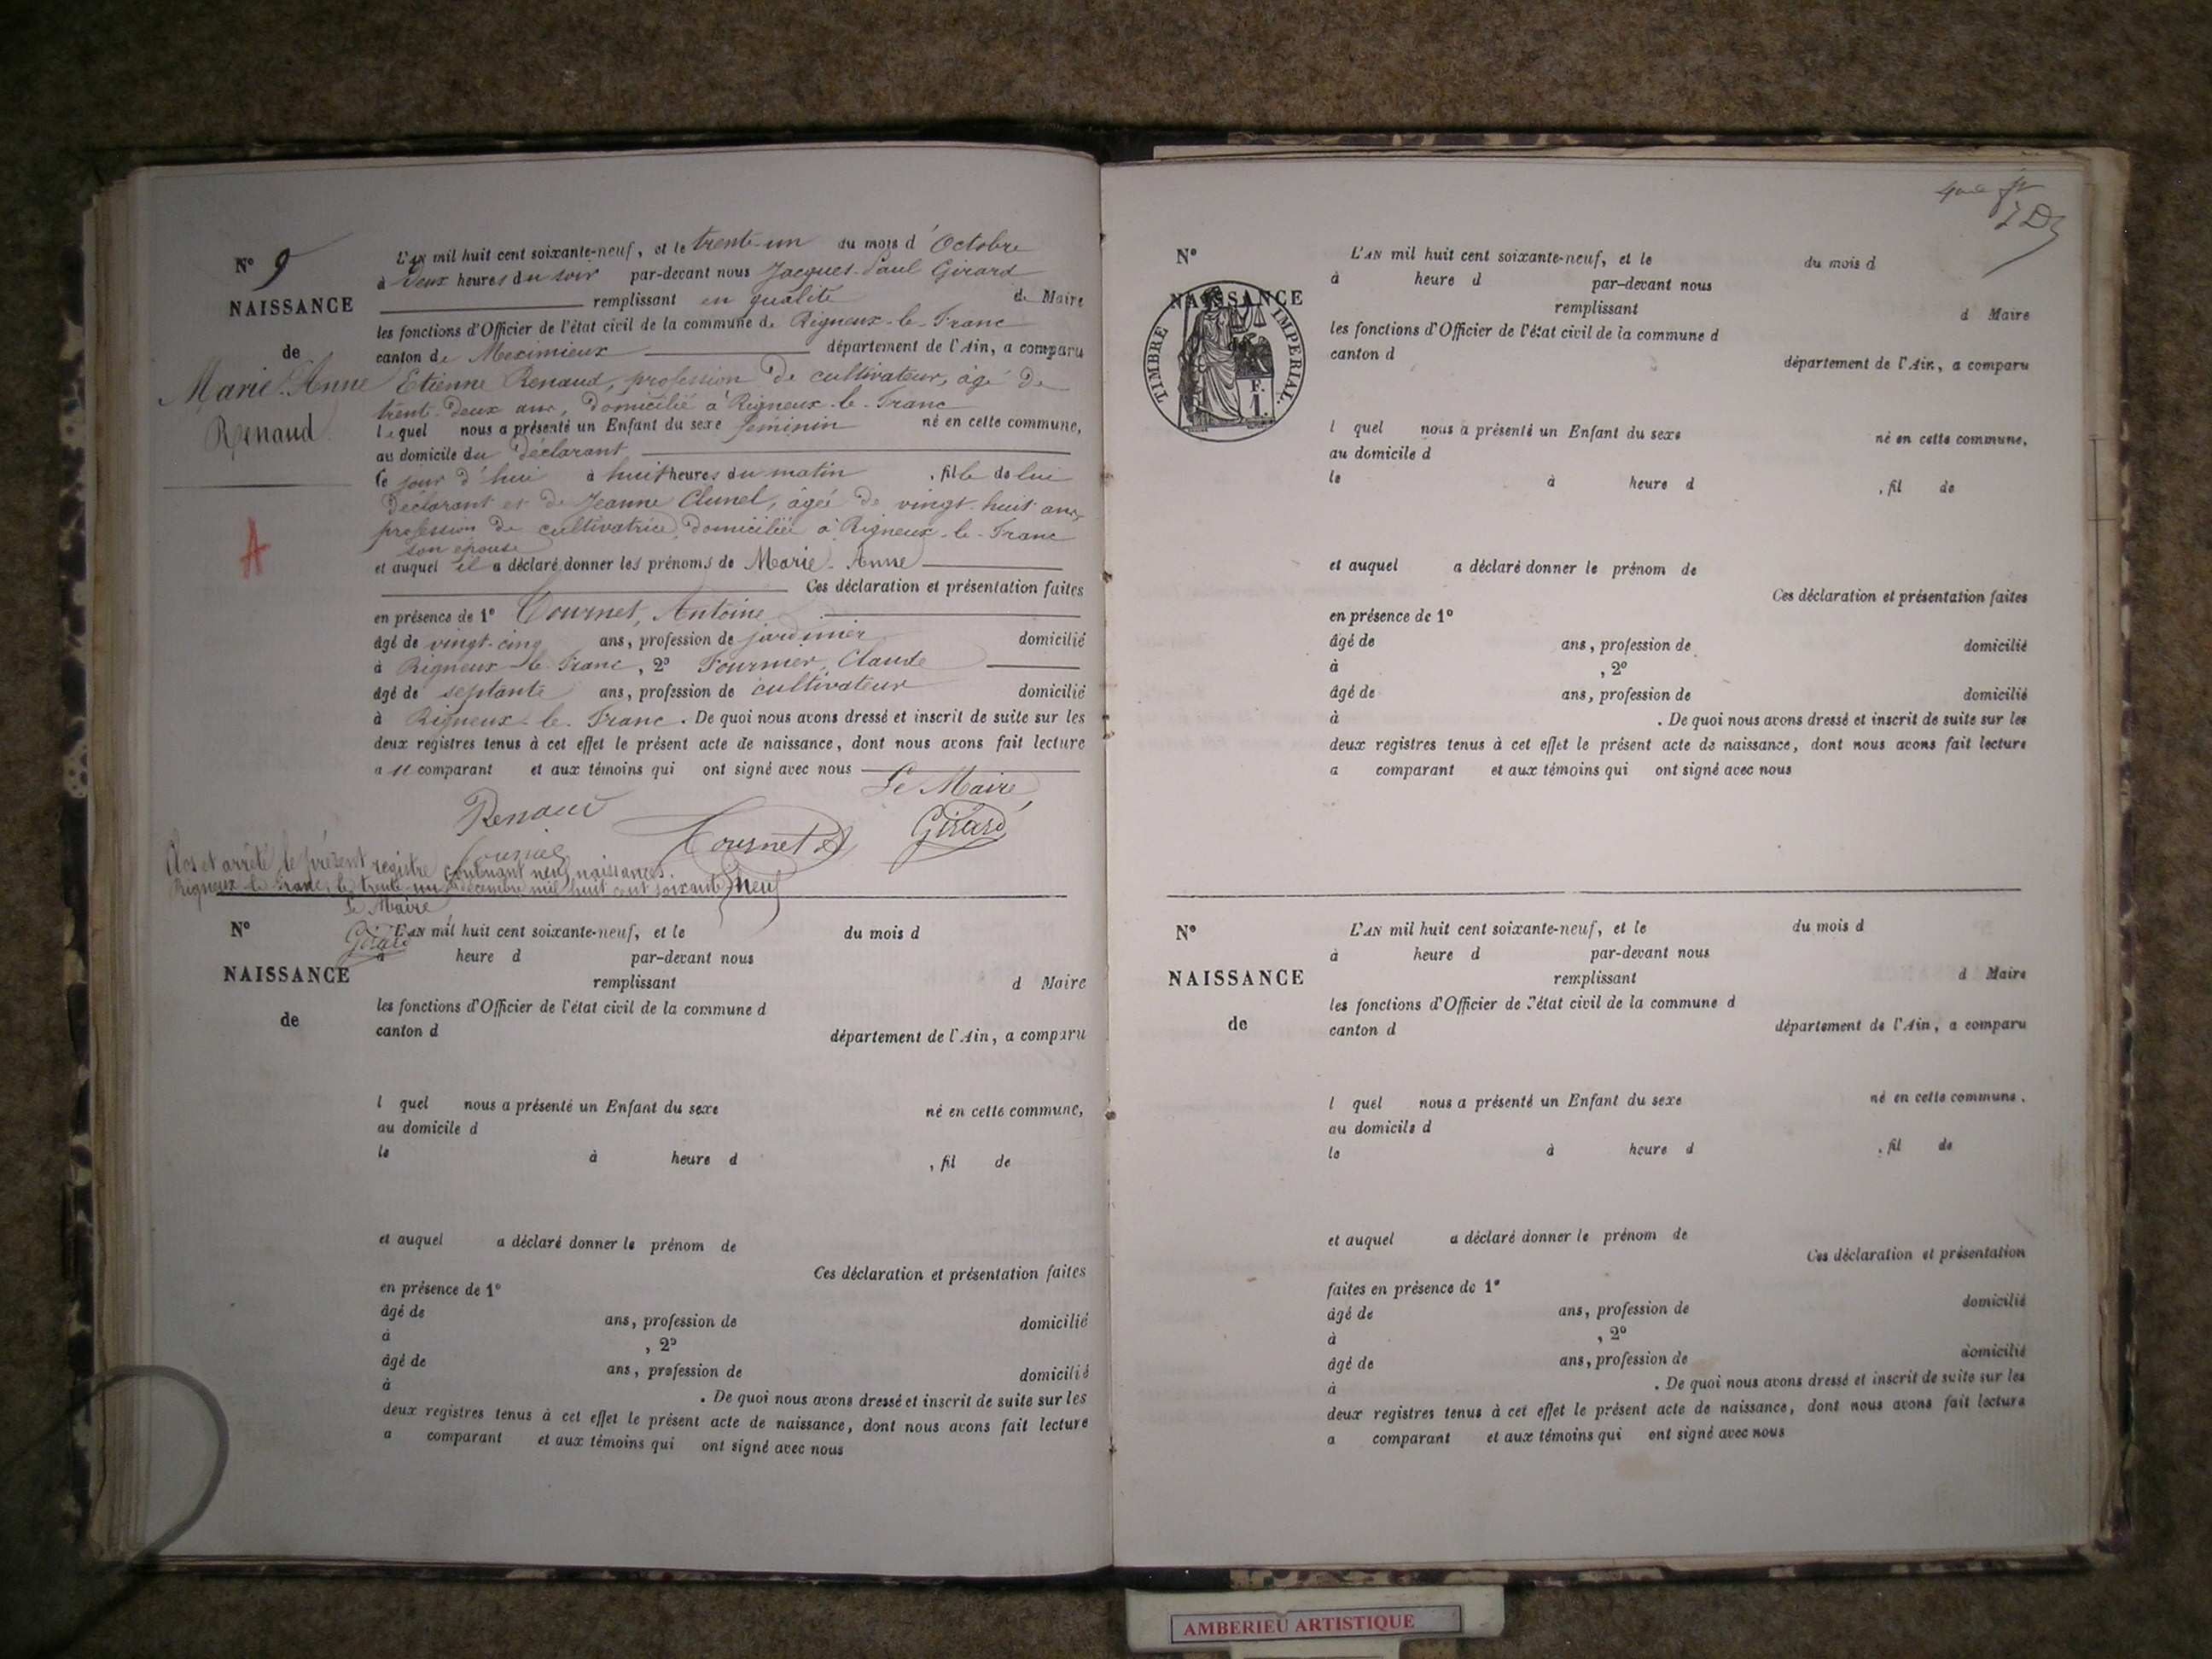 N° 9
NAISSANCE
de
Marie-Anne
Renaud
A
L'AN mil huit cent soixante-neuf, et le trente-un du mois d'Octobre
à deux heures du soir par-devant nous Jacques-Paul Girard
remplissant en qualité de Maire
les fonctions d'Officier de l'état civil de la commune de Rigneux-le-Franc
canton de Meximieux département de l'Ain, a comparu
Etienne Renaud, profession de cultivateur, âgé de
trente-deux ans, domicilié à Rigneux-le-Franc
lequel nous a présenté un Enfant du sexe féminin né en cette commune,
au domicile du déclarant
le jour d'hui à huit heures du matin, fille de lui
déclarant et de Jeanne Clunel, âgée de vingt-huit ans,
profession de cultivatrice, domiciliée à Rigneux-le-Franc
son épouse
et auquel il a déclaré donner les prénoms de Marie-Anne
Ces déclaration et présentation faites
en présence de 1° Tournet, Antoine
âgé de vingt-cinq ans, profession de jardinier domicilié
à Rigneux-le-Franc, 2° Fournier, Claude
âgé de septante ans, profession de cultivateur domicilié
à Rigneux-le-Franc. De quoi nous avons dressé et inscrit de suite sur les
deux registres tenus à cet effet le présent acte de naissance, dont nous avons fait lecture
a u comparant et aux témoins qui ont signé avec nous
Le Maire
Renaud
Tournet A
Girard
Fournier
Clos et arrêté le présent registre contenant neuf naissances.
Rigneux-le-Franc, le trente-un décembre mil huit cent soixante neuf
Le Maire
Girard
N°
NAISSANCE
de
L'AN mil huit cent soixante-neuf, et le du mois d
à heure d par-devant nous
remplissant d Maire
les fonctions d'Officier de l'état civil de la commune d
canton d
département de l'Ain, a comparu
l quel nous a présenté un Enfant du sexe né en cette commune,
au domicile d
le à heure d , fil de
et auquel a déclaré donner le prénom de
Ces déclaration et présentation faites
en présence de 1°
âgé de ans, profession de domicilié
à , 2°
âgé de ans, profession de domicilié
à . De quoi nous avons dressé et inscrit de suite sur les
deux registres tenus à cet effet le présent acte de naissance, dont nous avons fait lecture
a comparant et aux témoins qui ont signé avec nous
N°
NAISSANCE
TIMBRE IMPERIAL.
1 F.
L'AN mil huit cent soixante-neuf, et le du mois d
à heure d par-devant nous
remplissant d Maire
les fonctions d'Officier de l'état civil de la commune d
canton d
département de l'Ain, a comparu
l quel nous a présenté un Enfant du sexe né en cette commune,
au domicile d
le à heure d , fil de
et auquel a déclaré donner le prénom de
Ces déclaration et présentation faites
en présence de 1°
âgé de ans, profession de domicilié
à , 2°
âgé de ans, profession de domicilié
à . De quoi nous avons dressé et inscrit de suite sur les
deux registres tenus à cet effet le présent acte de naissance, dont nous avons fait lecture
a comparant et aux témoins qui ont signé avec nous
N°
NAISSANCE
de
L'AN mil huit cent soixante-neuf, et le du mois d
à heure d par-devant nous
remplissant d Maire
les fonctions d'Officier de l'état civil de la commune d
canton d
département de l'Ain, a comparu
l quel nous a présenté un Enfant du sexe né en cette commune,
au domicile d
le à heure d , fil de
et auquel a déclaré donner le prénom de
Ces déclaration et présentation
faites en présence de 1°
âgé de ans, profession de domicilié
à , 2°
âgé de ans, profession de domicilié
à . De quoi nous avons dressé et inscrit de suite sur les
deux registres tenus à cet effet le présent acte de naissance, dont nous avons fait lecture
a comparant et aux témoins qui ont signé avec nous
AMBERIEU ARTISTIQUE